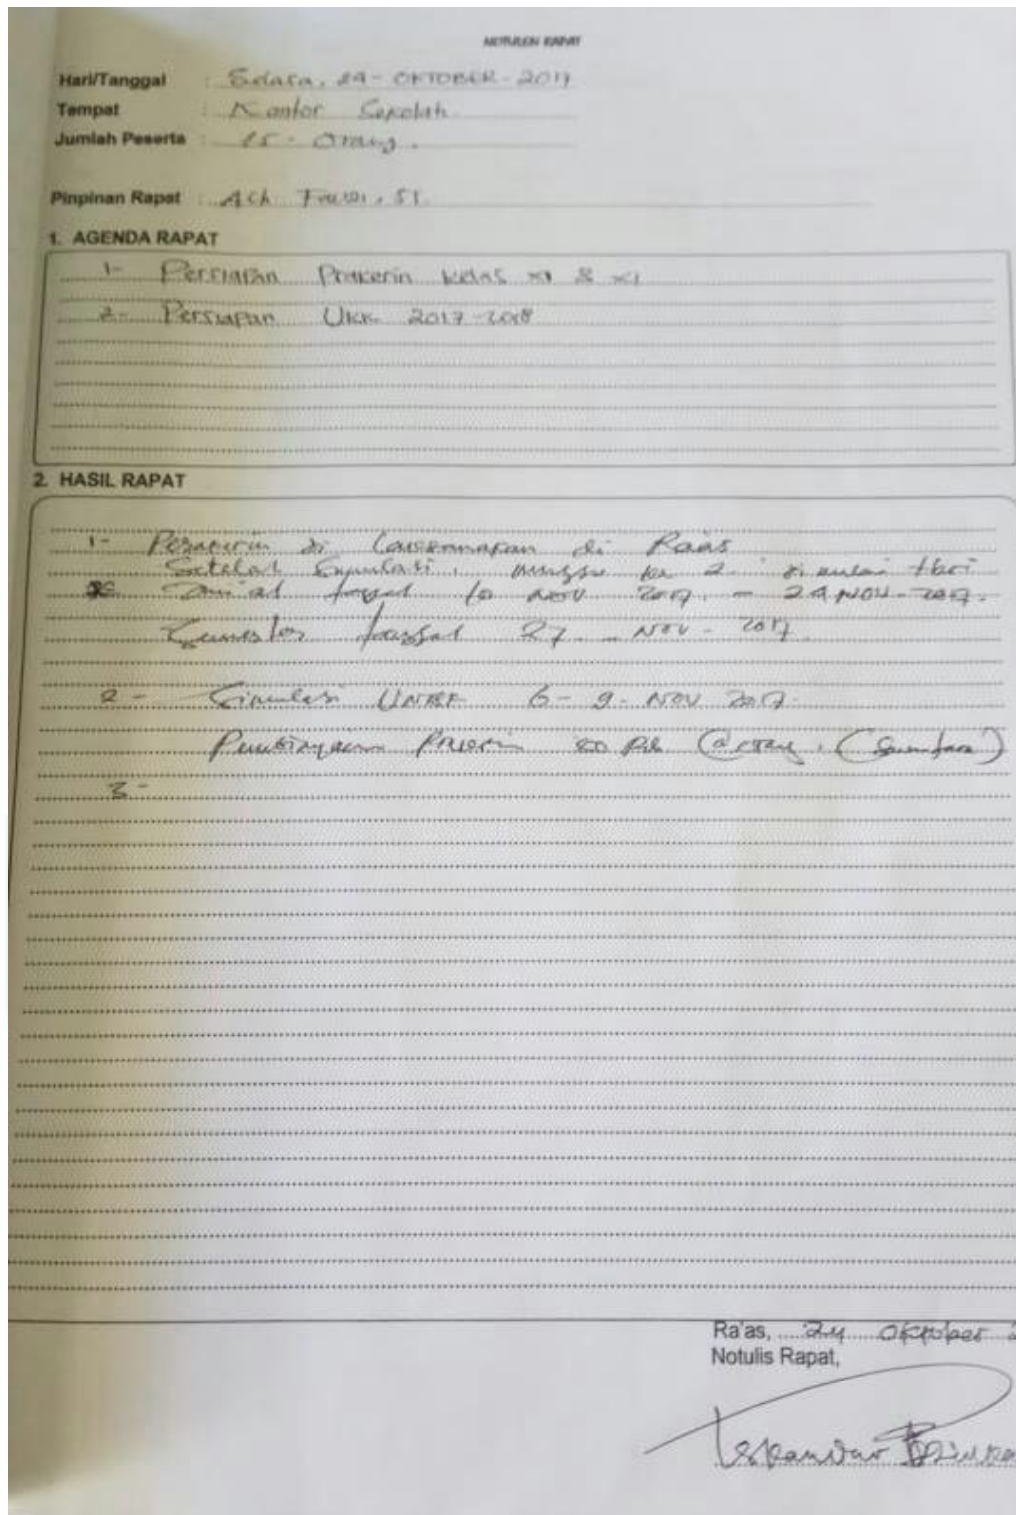 NOTULEN RAPAT
Hari/Tanggal : Selasa, 24 - OKTOBER - 2017
Tempat : Kantor Sekolah
Jumlah Peserta : 15 - Orang.
Pinpinan Rapat : Ach. Fauzi, ST.
1. AGENDA RAPAT
1- Persiapan Prakerin kelas XI & XI
2- Persiapan UKK 2017-2018
2. HASIL RAPAT
1- di di Raas
Setelah minggu ke 2. di mulai Hari
10 NOV 2017. - 24 NOV - 2017.
27 - NOV - 2017.
2 - Simulasi UNBK 6 - 9 - NOV 2017.
Pembiayaan Prakerin Rb
3 -
Ra'as, 24 Oktober 2
Notulis Rapat,
Iskandar